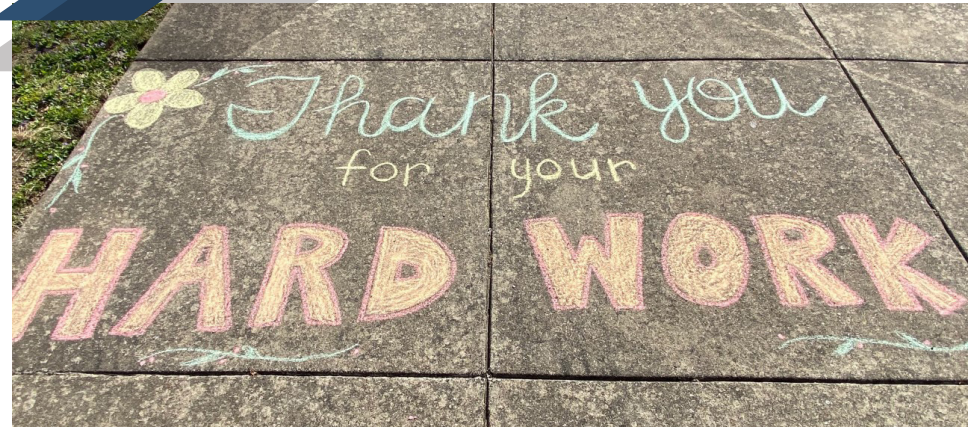 Thank you
for your
HARD WORK